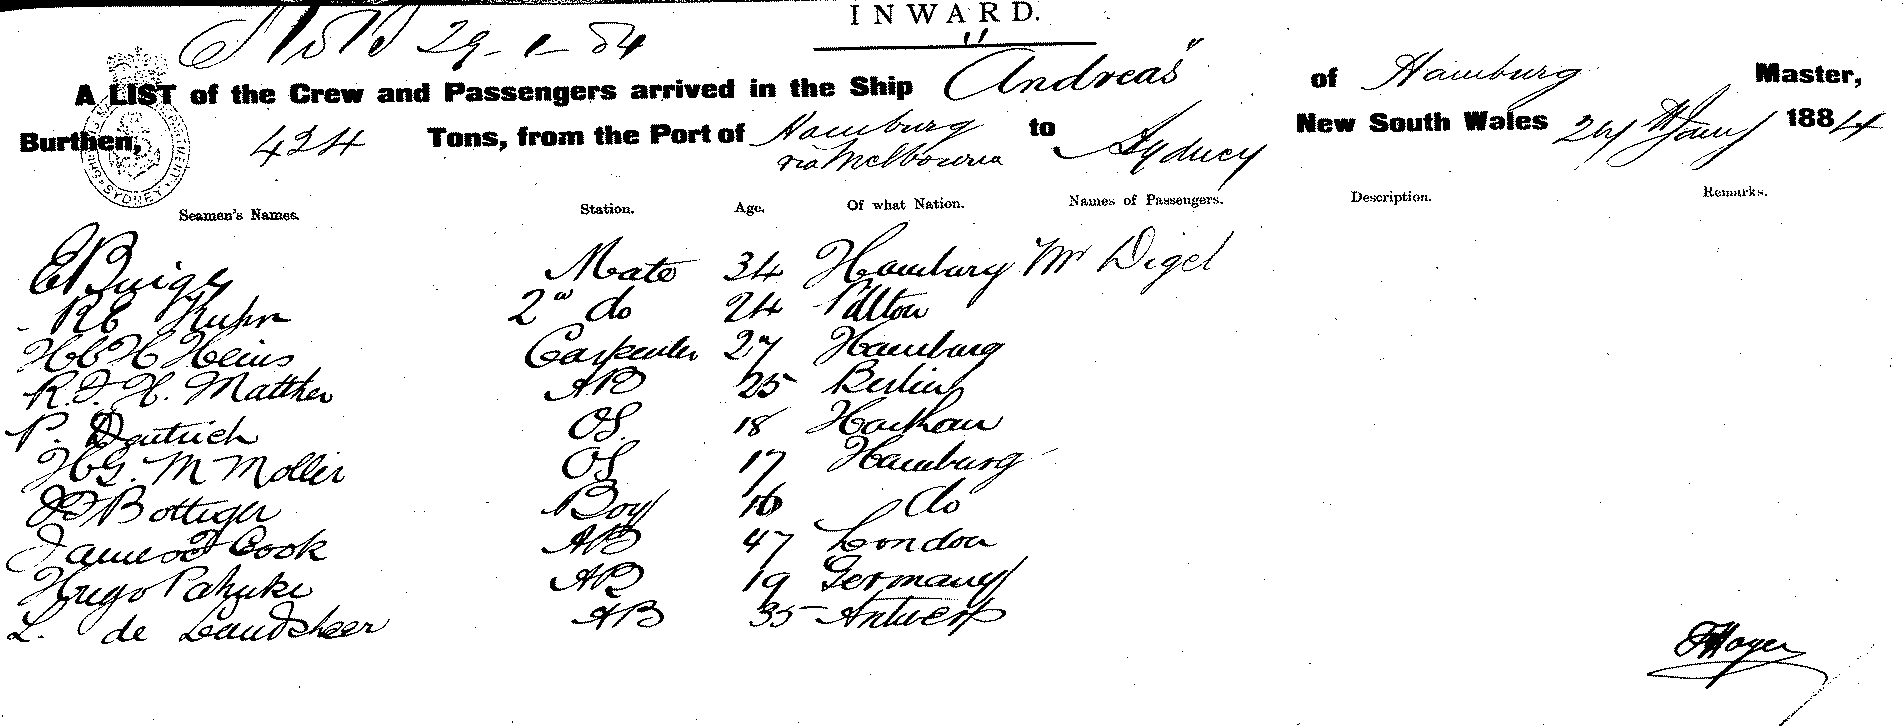 INWARD.
29-1-84
A LIST of the Crew and Passengers arrived in the Ship "Andreas" of Hamburg Master,
Burthen, 424 Tons, from the Port of Hamburg via Melbourne to Sydney New South Wales 24th Jany 1884
Seamen's Names. Station. Age. Of what Nation. Names of Passengers. Description. Remarks.
E Mate 34 Hamburg Mr Digel
RE Kuhn 2nd do 24
HCH Heins Carpenter 27 Hamburg
R.F.H. Matther AB 25 Berlin
P. OS. 18
HG. M Moller OS 17 Hamburg
Bottiger Boy 16 do
James Cook AB 47 London
Hugo AB 19 Germany
L. de Landsheer AB 35 Antwerp
SYDNEY